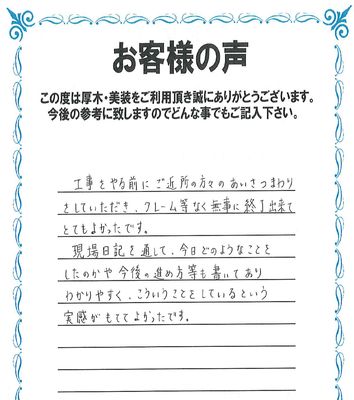 お客様の声
この度は厚木・美装をご利用頂き誠にありがとうございます。
今後の参考に致しますのでどんな事でもご記入下さい。
工事をやる前にご近所の方々のあいさつまわり
をしていただき、クレーム等なく無事に終了出来て
とてもよかったです。
現場日記を通して、今日どのようなことを
したのかや今後の進め方等も書いてあり
わかりやすく、こういうことをしているという
実感がもててよかったです。